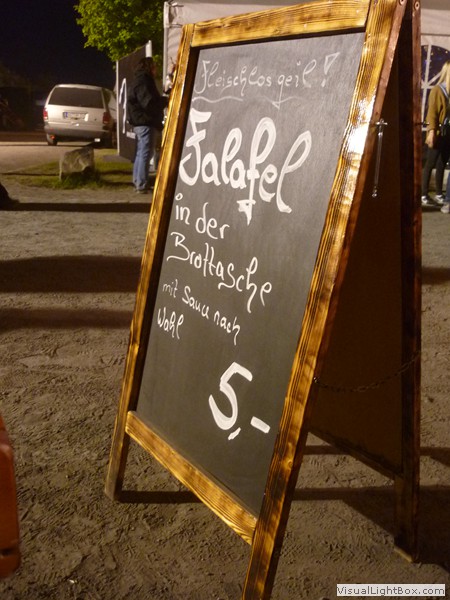 Fleischlos geil!
Falafel
in der
Brottasche
mit Sauce nach
Wahl
5,-
VisualLightBox.com